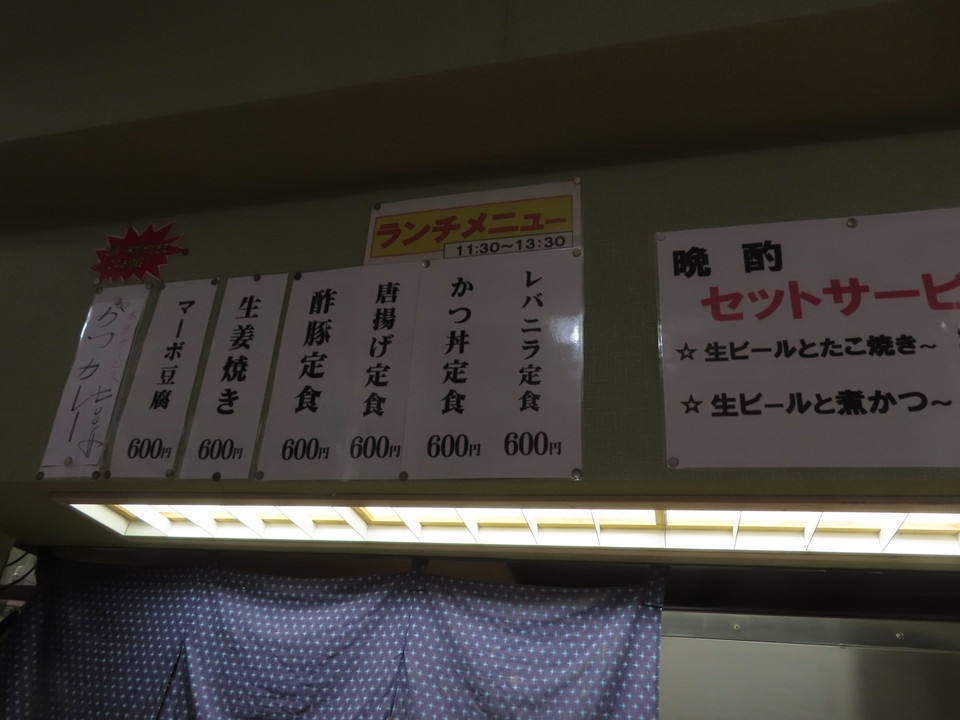 ランチメニュー
11:30～13:30
レバニラ定食
600円
かつ丼定食
600円
唐揚げ定食
600円
酢豚定食
600円
生姜焼き
600円
マーボ豆腐
600円
かつカレー
晩酌
セットサービ
☆生ビールとたこ焼き～
☆生ビールと煮かつ～